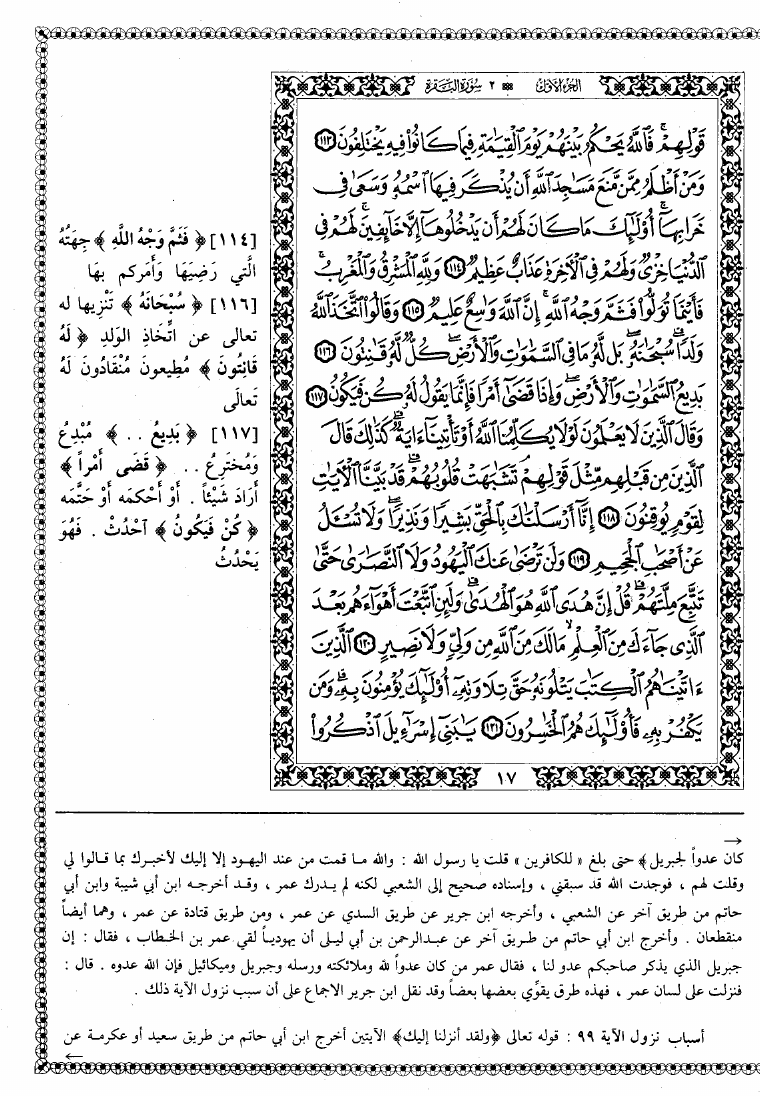 الجزء الأول ٢ سورة البقرة
قَوۡلِهِمۡۚ فَٱللَّهُ يَحۡكُمُ بَيۡنَهُمۡ يَوۡمَ ٱلۡقِيَٰمَةِ فِيمَا كَانُواْ فِيهِ يَخۡتَلِفُونَ ١١٣
وَمَنۡ أَظۡلَمُ مِمَّن مَّنَعَ مَسَٰجِدَ ٱللَّهِ أَن يُذۡكَرَ فِيهَا ٱسۡمُهُۥ وَسَعَىٰ فِي
خَرَابِهَآۚ أُوْلَٰٓئِكَ مَا كَانَ لَهُمۡ أَن يَدۡخُلُوهَآ إِلَّا خَآئِفِينَۚ لَهُمۡ فِي
ٱلدُّنۡيَا خِزۡيٞ وَلَهُمۡ فِي ٱلۡأٓخِرَةِ عَذَابٌ عَظِيمٞ ١١٤ وَلِلَّهِ ٱلۡمَشۡرِقُ وَٱلۡمَغۡرِبُۚ
فَأَيۡنَمَا تُوَلُّواْ فَثَمَّ وَجۡهُ ٱللَّهِۚ إِنَّ ٱللَّهَ وَٰسِعٌ عَلِيمٞ ١١٥ وَقَالُواْ ٱتَّخَذَ ٱللَّهُ
وَلَدٗاۗ سُبۡحَٰنَهُۥۖ بَل لَّهُۥ مَا فِي ٱلسَّمَٰوَٰتِ وَٱلۡأَرۡضِۖ كُلّٞ لَّهُۥ قَٰنِتُونَ ١١٦
بَدِيعُ ٱلسَّمَٰوَٰتِ وَٱلۡأَرۡضِۖ وَإِذَا قَضَىٰٓ أَمۡرٗا فَإِنَّمَا يَقُولُ لَهُۥ كُن فَيَكُونُ ١١٧
وَقَالَ ٱلَّذِينَ لَا يَعۡلَمُونَ لَوۡلَا يُكَلِّمُنَا ٱللَّهُ أَوۡ تَأۡتِينَآ ءَايَةٞۗ كَذَٰلِكَ قَالَ
ٱلَّذِينَ مِن قَبۡلِهِم مِّثۡلَ قَوۡلِهِمۡۘ تَشَٰبَهَتۡ قُلُوبُهُمۡۗ قَدۡ بَيَّنَّا ٱلۡأٓيَٰتِ
لِقَوۡمٖ يُوقِنُونَ ١١٨ إِنَّآ أَرۡسَلۡنَٰكَ بِٱلۡحَقِّ بَشِيرٗا وَنَذِيرٗاۖ وَلَا تُسۡـَٔلُ
عَنۡ أَصۡحَٰبِ ٱلۡجَحِيمِ ١١٩ وَلَن تَرۡضَىٰ عَنكَ ٱلۡيَهُودُ وَلَا ٱلنَّصَٰرَىٰ حَتَّىٰ
تَتَّبِعَ مِلَّتَهُمۡۗ قُلۡ إِنَّ هُدَى ٱللَّهِ هُوَ ٱلۡهُدَىٰۗ وَلَئِنِ ٱتَّبَعۡتَ أَهۡوَآءَهُم بَعۡدَ
ٱلَّذِي جَآءَكَ مِنَ ٱلۡعِلۡمِ مَا لَكَ مِنَ ٱللَّهِ مِن وَلِيّٖ وَلَا نَصِيرٍ ١٢٠ ٱلَّذِينَ
ءَاتَيۡنَٰهُمُ ٱلۡكِتَٰبَ يَتۡلُونَهُۥ حَقَّ تِلَاوَتِهِۦٓ أُوْلَٰٓئِكَ يُؤۡمِنُونَ بِهِۦۗ وَمَن
يَكۡفُرۡ بِهِۦ فَأُوْلَٰٓئِكَ هُمُ ٱلۡخَٰسِرُونَ ١٢١ يَٰبَنِيٓ إِسۡرَٰٓءِيلَ ٱذۡكُرُواْ
١٧
[١١٤] ﴿ فَثَمَّ وَجْهُ اللَّهِ ﴾ جِهَتُهُ
الَّتي رَضِيَهَا وَأَمَرَكم بِهَا
[١١٦] ﴿ سُبْحَانَهُ ﴾ تَنْزِيها له
تعالى عن اتِّخَاذِ الوَلَدِ ﴿ لَهُ
قَانِتُونَ ﴾ مُطيعونَ مُنْقَادُونَ لَهُ
تَعالَى
[١١٧] ﴿ بَدِيعُ .. ﴾ مُبْدِعُ
وَمُخْتَرِعُ .. ﴿ قَضَى أَمْراً ﴾
أَرَادَ شَيْئاً . أَوْ أَحْكمَه أَوْ حَتَّمَه
﴿ كُنْ فَيَكُونُ ﴾ احْدُثْ . فَهُوَ
يَحْدُثُ
كان عدواً لجبريل﴾ حتى بلغ « للكافرين » قلت يا رسول الله : والله ما قمت من عند اليهود إلا إليك لأخبرك بما قالوا لي
وقلت لهم ، فوجدت الله قد سبقني ، وإسناده صحيح إلى الشعبي لكنه لم يدرك عمر ، وقد أخرجه ابن أبي شيبة وابن أبي
حاتم من طريق آخر عن الشعبي ، وأخرجه ابن جرير عن طريق السدي عن عمر ، ومن طريق قتادة عن عمر ، وهما أيضاً
منقطعان . وأخرج ابن أبي حاتم من طريق آخر عن عبدالرحمن بن أبي ليلى أن يهودياً لقي عمر بن الخطاب ، فقال : إن
جبريل الذي يذكر صاحبكم عدو لنا ، فقال عمر من كان عدواً لله وملائكته ورسله وجبريل وميكائيل فإن الله عدوه . قال :
فنزلت على لسان عمر ، فهذه طرق يقوِّي بعضها بعضاً وقد نقل ابن جرير الاجماع على أن سبب نزول الآية ذلك .
أسباب نزول الآية ٩٩ : قوله تعالى ﴿ولقد أنزلنا إليك﴾ الآيتين أخرج ابن أبي حاتم من طريق سعيد أو عكرمة عن